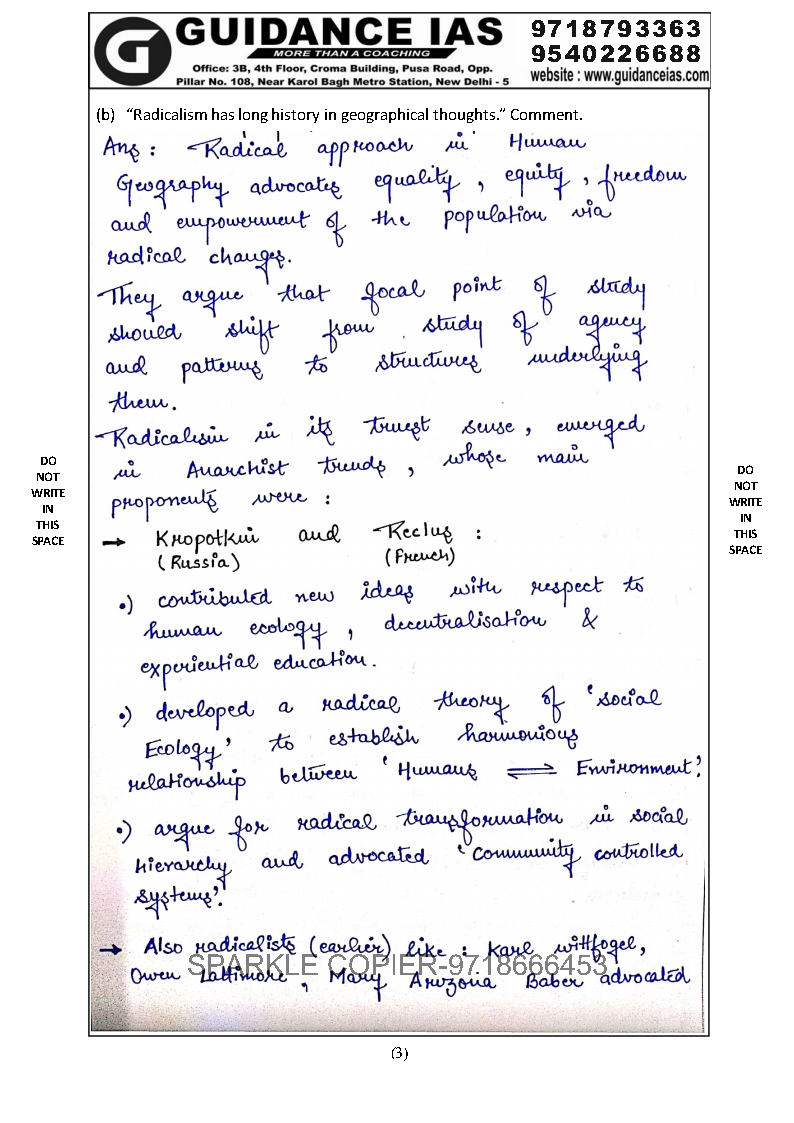 GUIDANCE IAS
MORE THAN A COACHING
Office: 3B, 4th Floor, Croma Building, Pusa Road, Opp.
Pillar No. 108, Near Karol Bagh Metro Station, New Delhi - 5
9718793363
9540226688
website : www.guidanceias.com
(b) “Radicalism has long history in geographical thoughts.” Comment.
Ans : Radical approach in Human
Geography advocates equality, equity, freedom
and empowerment of the population via
radical changes.
They argue that focal point of study
should shift from study of agency
and patterns to structures underlying
them.
Radicalism in its truest sense, emerged
in Anarchist trends, whose main
proponents were :
→ Kropotkin and Reclus :
(Russia) (French)
•) contributed new ideas with respect to
human ecology, decentralisation &
experiential education.
•) developed a radical theory of 'social
Ecology' to establish harmonious
relationship between 'Humans ⇌ Environment'.
•) argue for radical transformation in social
hierarchy and advocated 'Community controlled
systems'.
→ Also radicalists (earlier) like : Karl wittfogel,
SPARKLE COPIER-9718666453
Owen Lattimore, Mary Aruzona Baber advocated
DO
NOT
WRITE
IN
THIS
SPACE
DO
NOT
WRITE
IN
THIS
SPACE
(3)